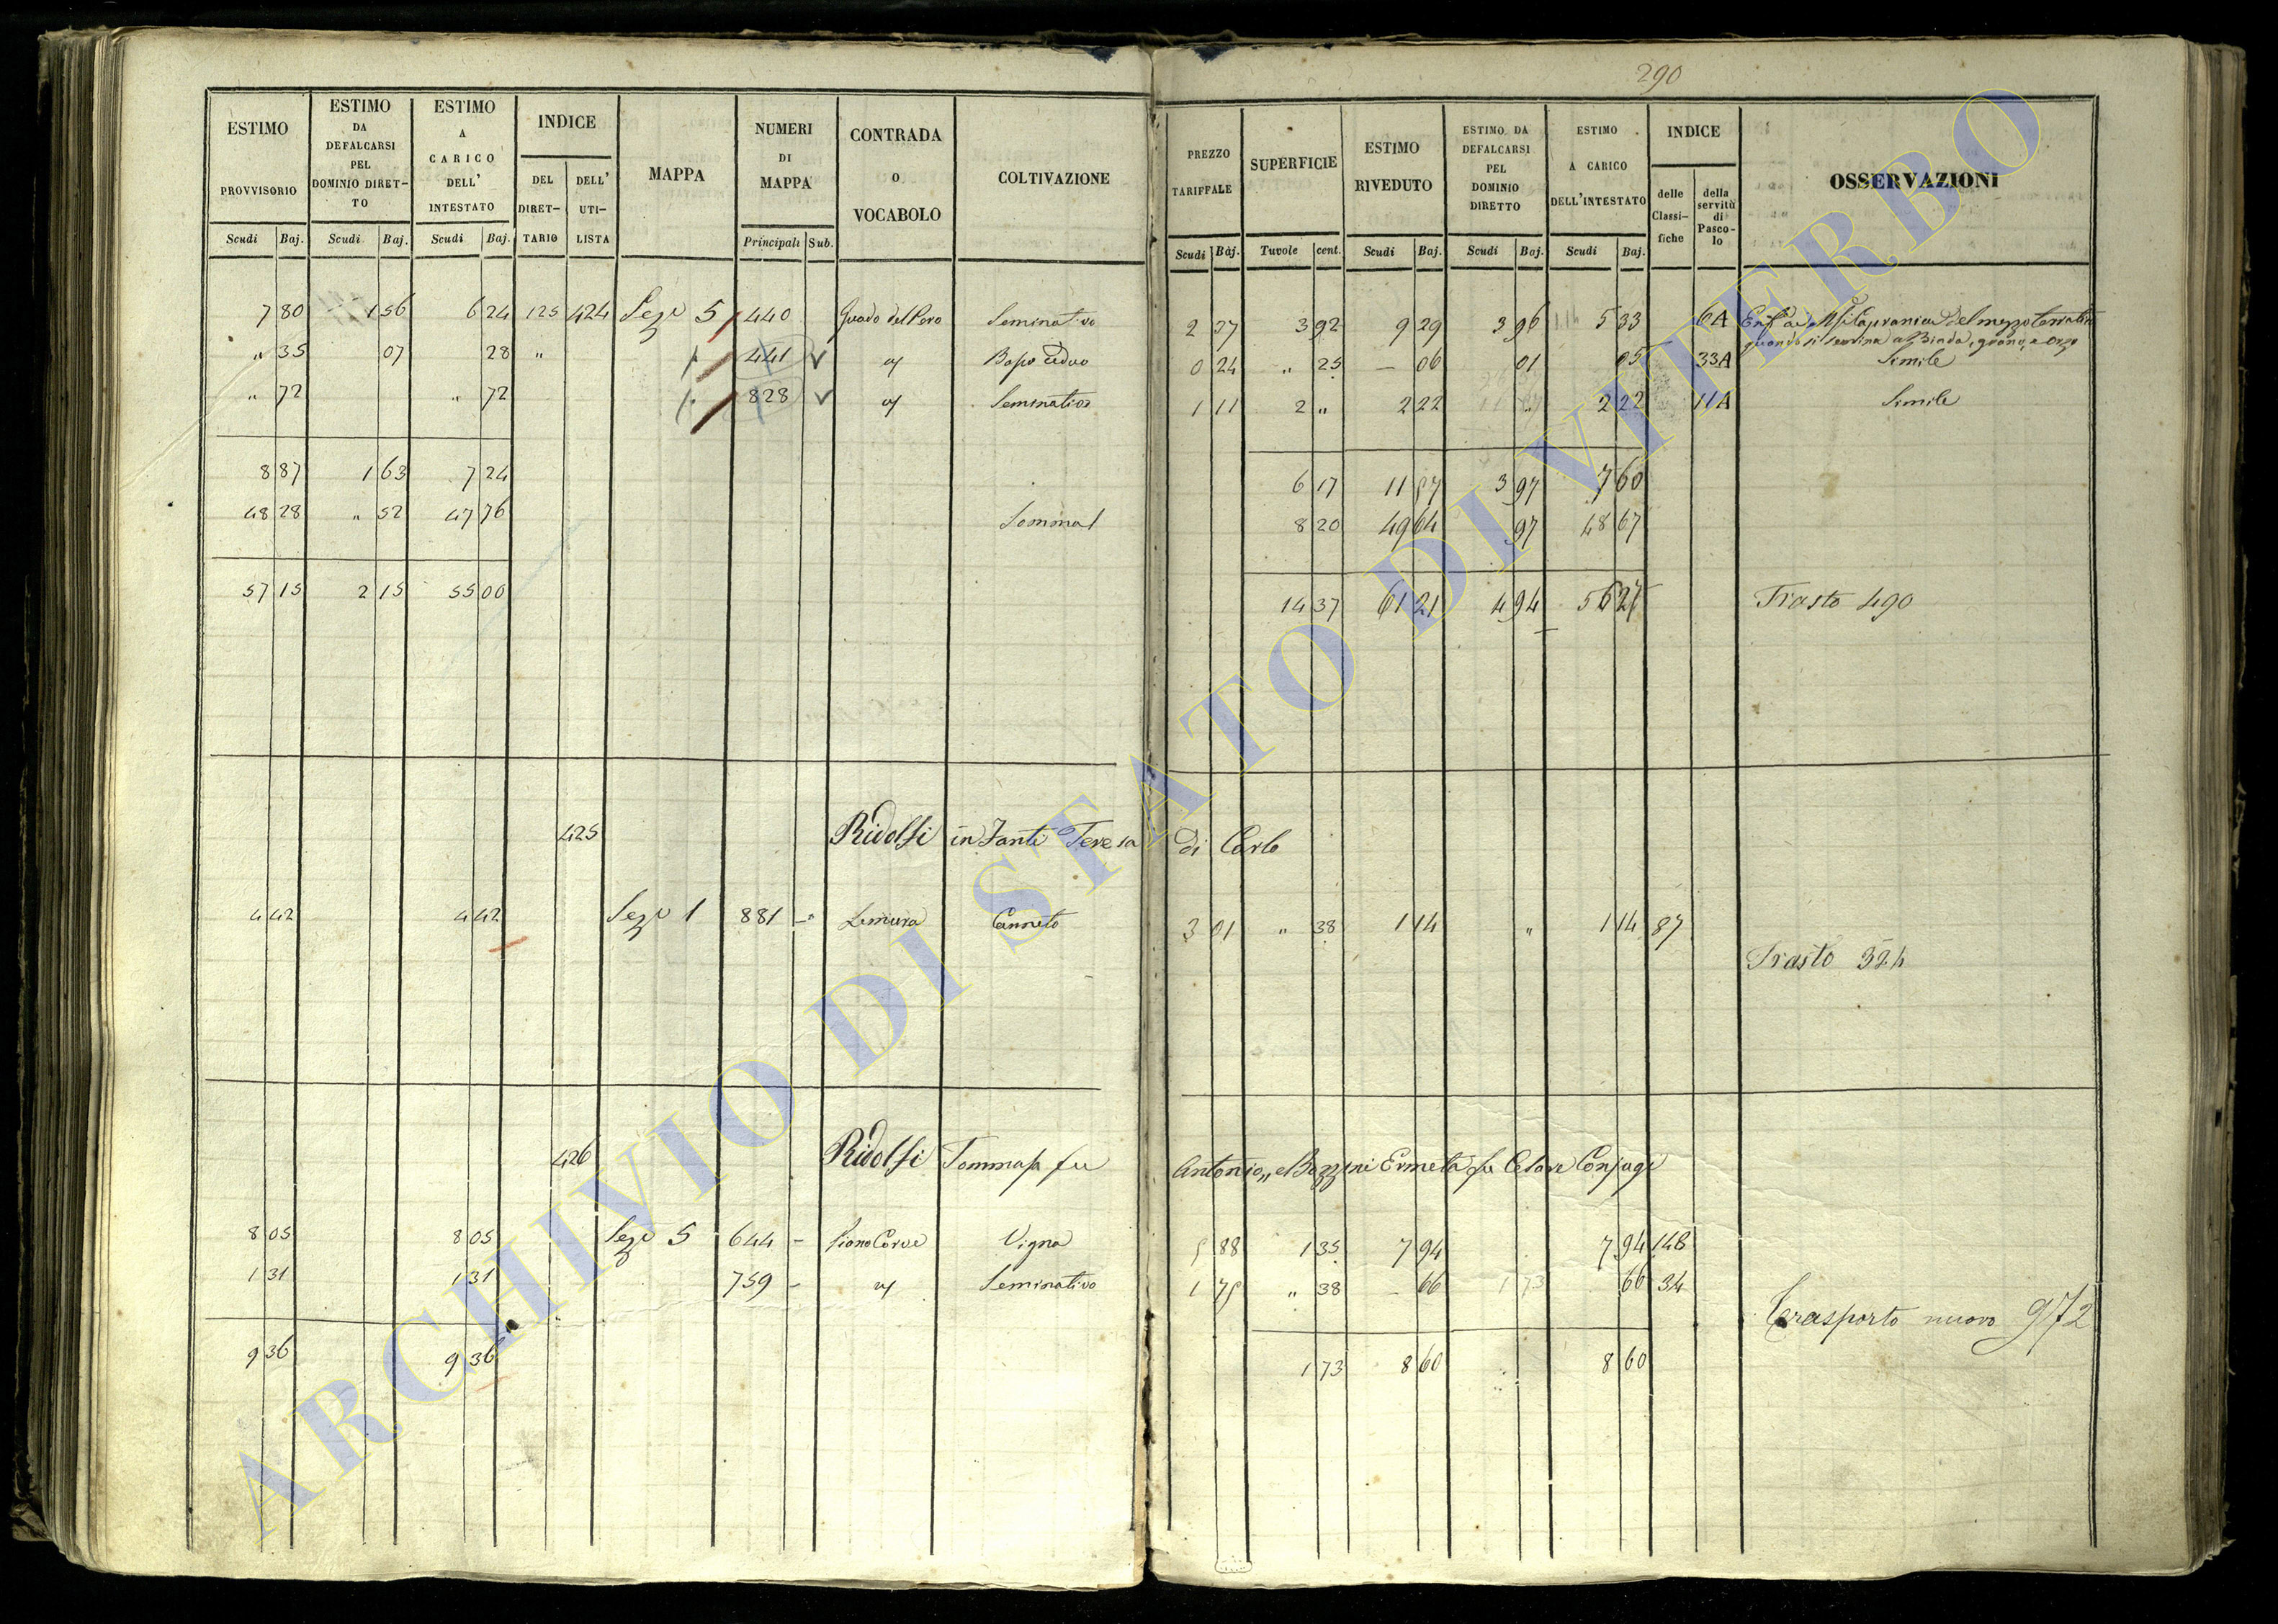 290
ESTIMO PROVVISORIO Scudi Baj.
ESTIMO DA DEFALCARSI PEL DOMINIO DIRET-TO Scudi Baj.
ESTIMO A CARICO DELL' INTESTATO Scudi Baj.
INDICE DEL DIRET-TARIO DELL' UTI-LISTA
MAPPA
NUMERI DI MAPPA Principali Sub.
CONTRADA O VOCABOLO
COLTIVAZIONE
PREZZO TARIFFALE Scudi Baj.
SUPERFICIE Tavole cent.
ESTIMO RIVEDUTO Scudi Baj.
ESTIMO DA DEFALCARSI PEL DOMINIO DIRETTO Scudi Baj.
ESTIMO A CARICO DELL'INTESTATO Scudi Baj.
INDICE delle Classi-fiche della servitù di Pasco-lo
OSSERVAZIONI
7 80 1 56 6 24 125 424 Seze 5 440 Guado del Pero Seminativo 2 37 3 92 9 29 3 96 5 33 6A
quando si semina a Biada, grano, e orzo
" 35 07 28 " 441 Bosco Ceduo 0 24 " 25 — 06 01 05 33A Simile
" 72 " 72 828 Seminativo 1 11 2 " 2 22 " 2 22 11A Simile
8 87 1 63 7 24 6 17 11 57 3 97 7 60
48 28 " 52 47 76 Somma 8 20 49 64 97 48 67
57 15 2 15 55 00 14 37 61 21 4 94 56 27 Trasto 490
425 Ridolfi in Fanti Teresa di Carlo
4 42 4 42 Seze 1 881 Canneto 3 01 " 38 1 14 " 1 14 87
Trasto 324
426 Ridolfi Tommasa fu Antonio, e Bozzini Ermeta fu Cesare Conjugi
8 05 8 05 Seze 5 644 - Piano Corve Vigna 5 88 1 35 7 94 7 94 148
1 31 1 31 759 - Seminativo 1 75 " 38 - 66 66 34
Trasporto nuovo 972
9 36 9 36 1 73 8 60 8 60
ARCHIVIO DI STATO DI VITERBO